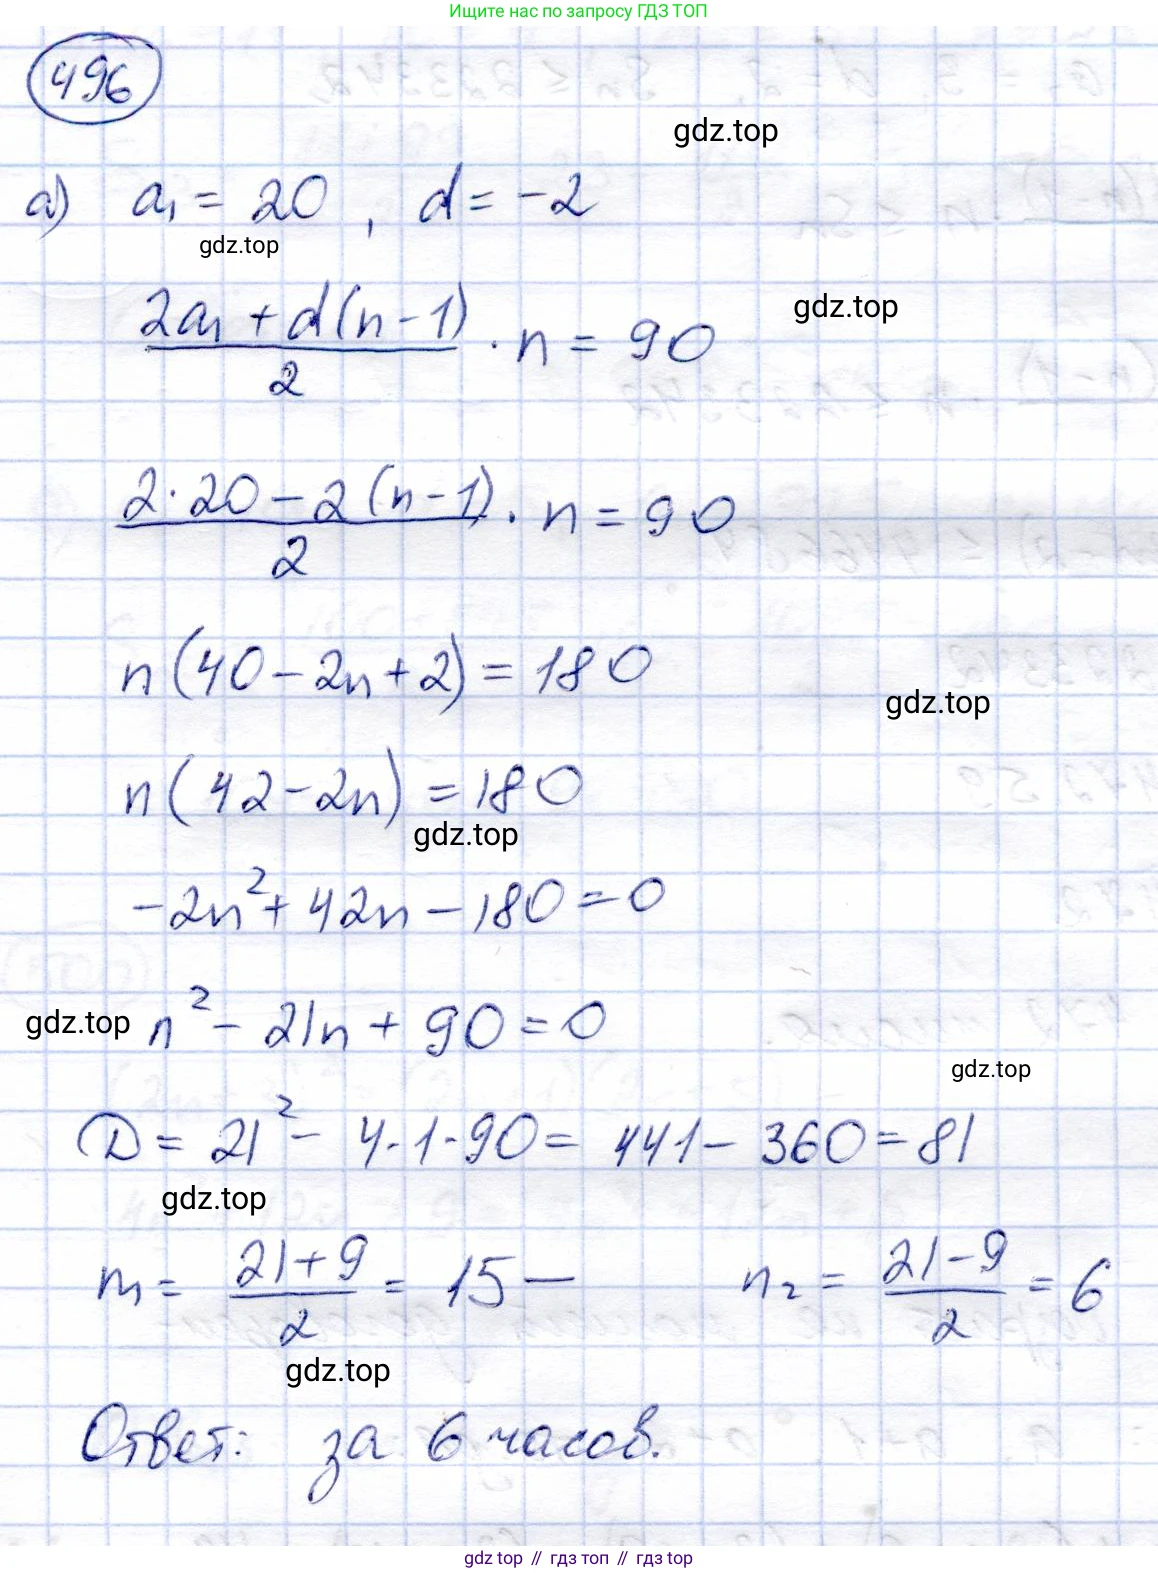 Ищите нас по запросу ГДЗ ТОП
496
gdz.top
а) a₁ = 20 , d = -2
gdz.top
(2a₁ + d(n-1))/2 · n = 90
gdz.top
(2·20 - 2(n-1))/2 · n = 90
gdz.top
n(40 - 2n + 2) = 180
gdz.top
n(42 - 2n) = 180
gdz.top
-2n² + 42n - 180 = 0
gdz.top
n² - 21n + 90 = 0
gdz.top
D = 21² - 4·1·90 = 441 - 360 = 81
gdz.top
n₁ = (21+9)/2 = 15 — n₂ = (21-9)/2 = 6
gdz.top
Ответ: за 6 часов.
gdz top // гдз топ // гдз top